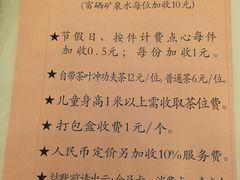 (富硒矿泉水每位加收10元)
★节假日、按件计费点心每件
加收0.5元；每份加收1元。
★自带茶叶冲功夫茶12元/位。普通茶6元/位。
★儿童身高1米以上需收取茶位费。
★打包盒收费1元/个。
★人民币定价另加收10%服务费。